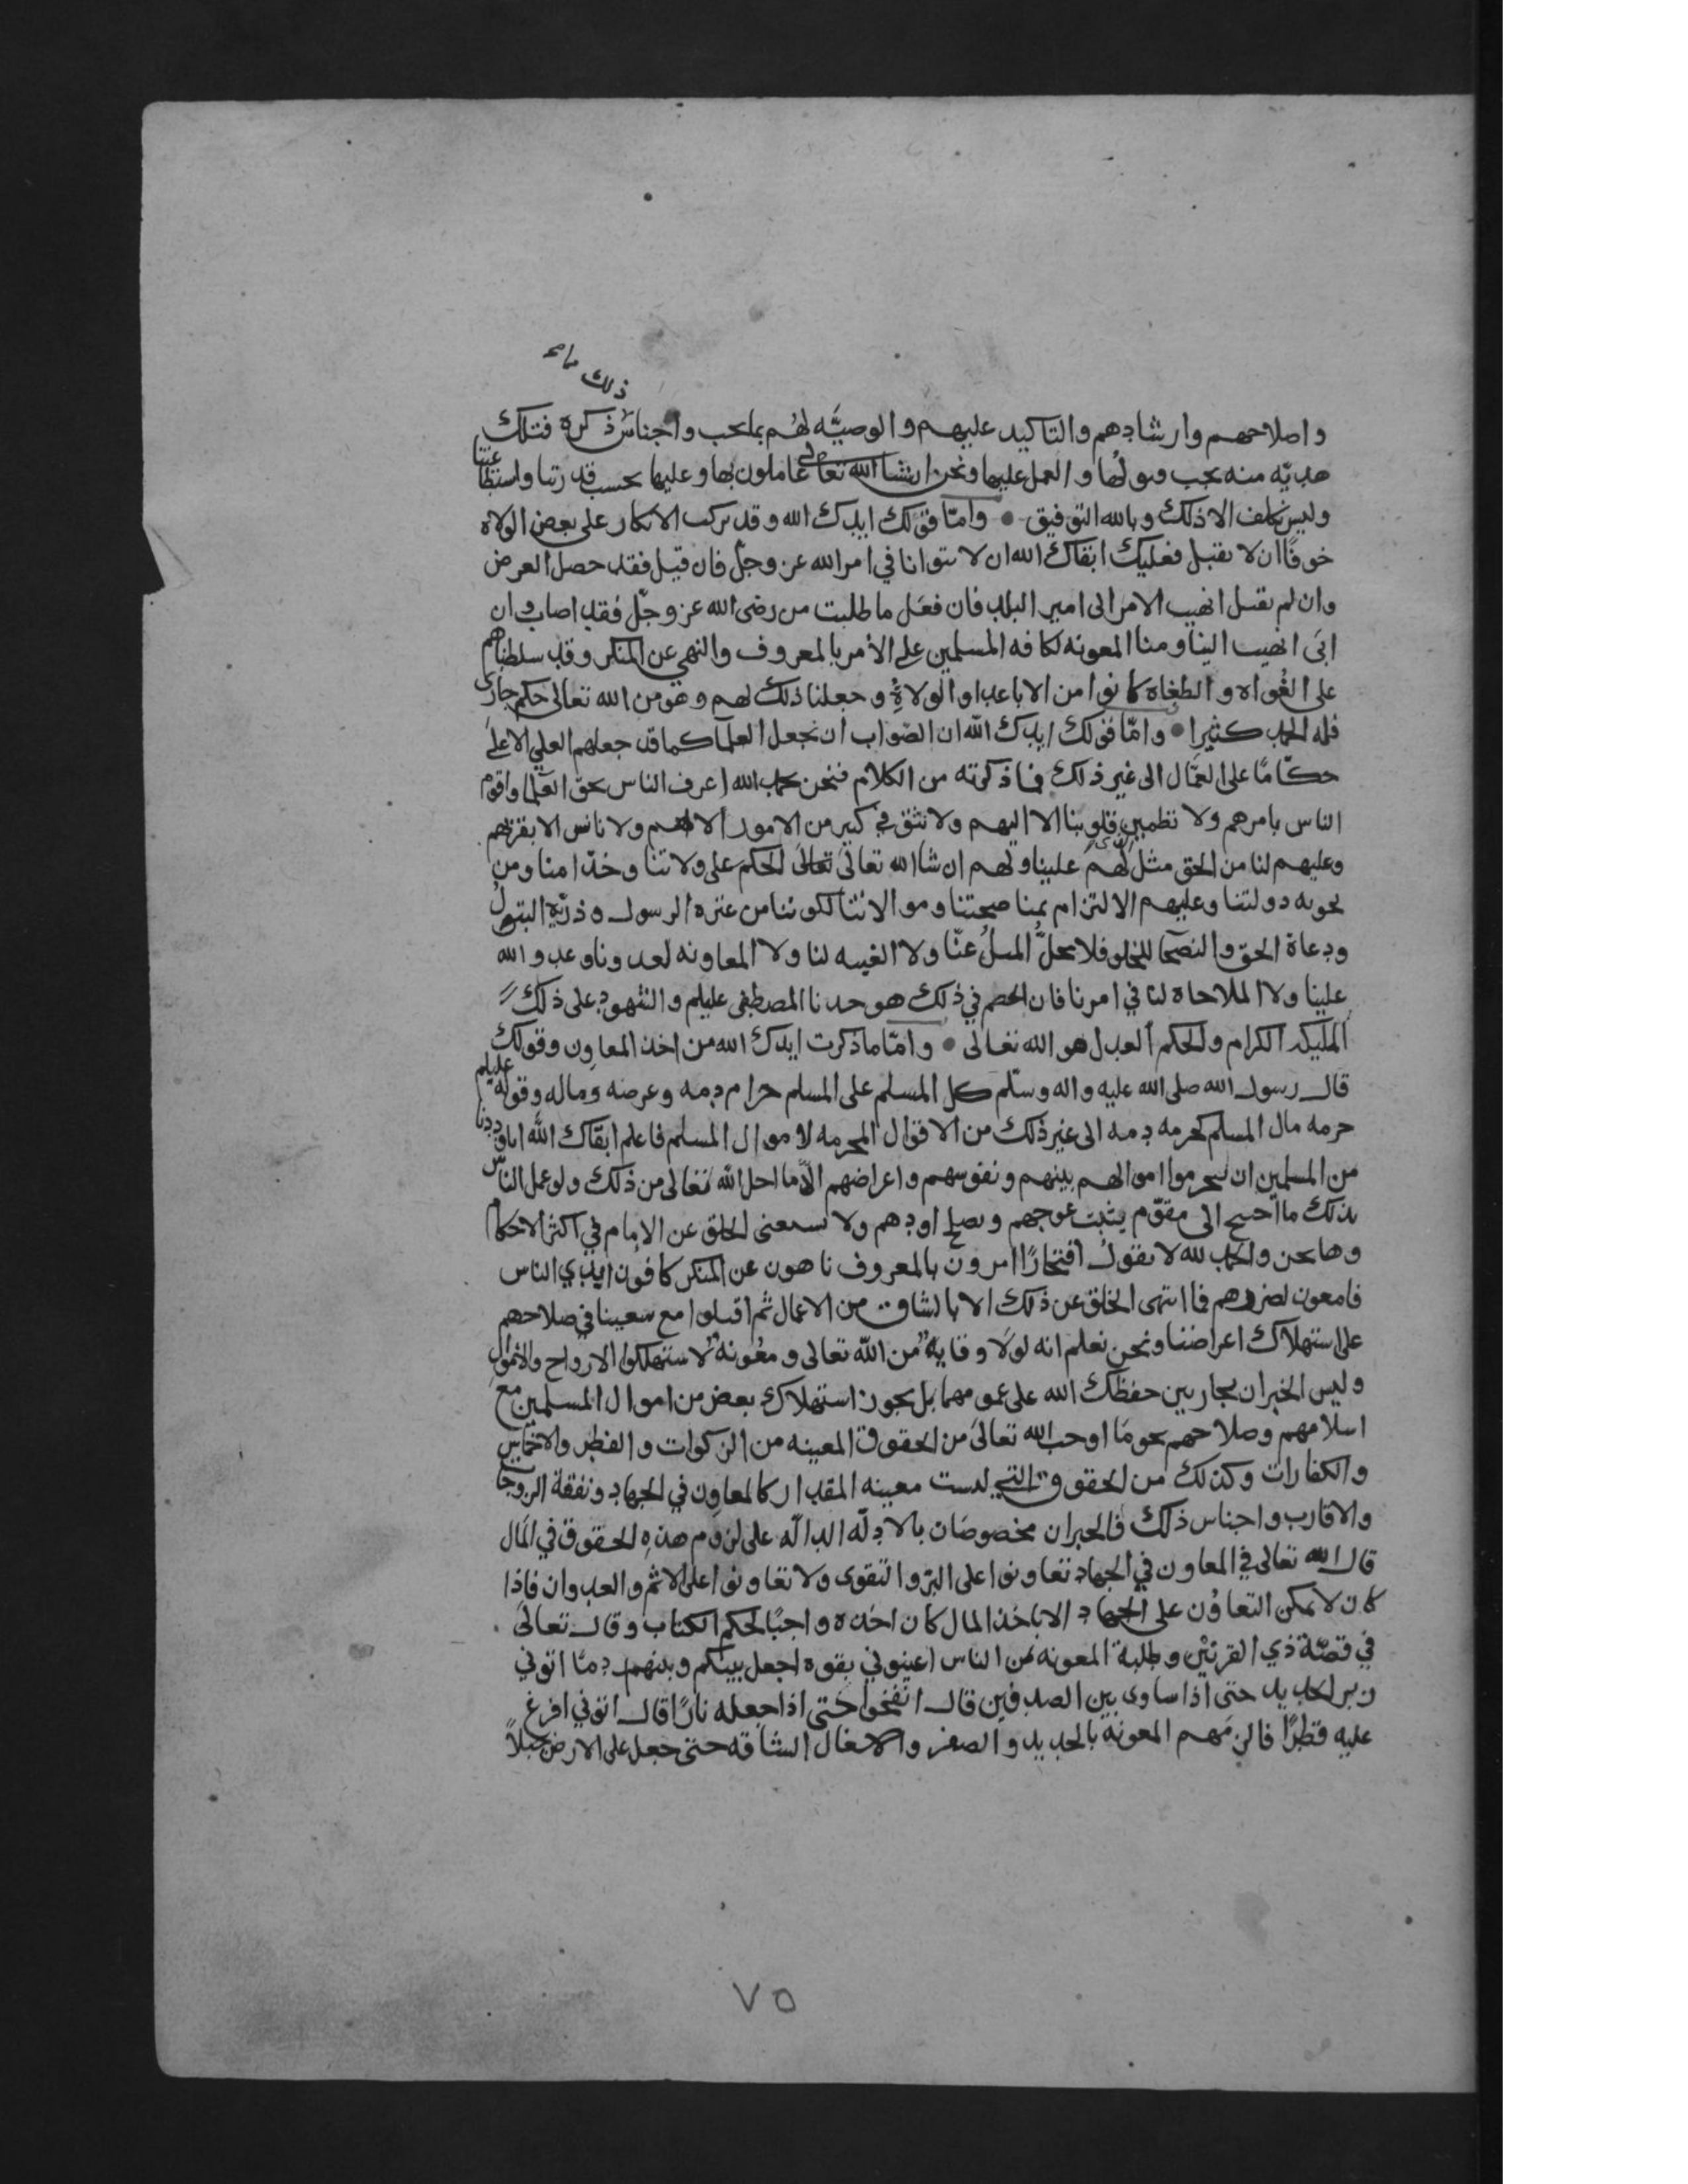 ذلك مما
واصلاحهم وارشادهم والتاكيد عليهم والوصيَّه لهُم بما يجب واجناس ذكره فتلك
هديّه منه يجب قبولُها والعمل عليها ونحن ان شا الله تعالى عاملون بها وعليها بحسب قدرتنا واستطاعتنا
وليس نكلف الا ذلك وبالله التوفيق • وامّا قولك ايدك الله وقد نركب الانكار على بعض الولاه
خوفًا ان لا يقبل فعليك ابقاك الله ان لا تتوانا في امر الله عز وجلّ فان قبل فقد حصل الغرض
وان لم يقبل انهيت الامر الى امير البلد فان فعل ما طلبت من رضى الله عز وجلّ فقد اصاب وان
ابَى انهيت الينا ومنا المعونه لكافه المسلمين على الأمر بالمعروف والنهي عن المنكر وقد سلطناهم
على الغُواه والطغاه كانوا من الاباعد او الولاةِ وجعلنا ذلك لهم وهو من الله تعالى حكم جارى
فله الحمد كثيرا • وامّا قولك ايدك الله ان الصّواب ان نجعل العلمآ كما قد جعلهم العلي الاعلى
حكّامًا على العمّال الى غير ذلك مما ذكرته من الكلام فنحن بحمد الله اعرف الناس بحقّ العلما واقوم
الناس بامرهم ولا تطمين قلوبنا الا اليهم ولا نثق في كبير من الامور الا لهم ولا نانس الا بقربهم
وعليهم لنا من الحق مثل الذي لهم علينا ولهم ان شا الله تعالى الحكم على ولاتنا وخدّامنا ومن
تحويه دولتنا وعليهم الالتزام بمناصحتنا وموالاتنا لكوننا من عتره الرسول وذريّة البتول
ودعاة الحقّ والنصحا للخلق فلا يحلّ الميلُ عنّا ولا الغيبه لنا ولا المعاونه لعدونا وعدو الله
علينا ولا الملاحاه لنا في امرنا فان الخصم في ذلك هو جدنا المصطفى عليلم والشهود على ذلك
الملايكه الكرام والحكم العدل هو الله تعالى • وامّا ما ذكرت ايدك الله من اخذ المعاون وقولك
قال رسول الله صلى الله عليه واله وسلّم كل المسلم على المسلم حرام دمه وعرضه وماله وقوله عليلم
حرمه مال المسلم كحرمه دمه الى غير ذلك من الاقوال المحرمه لاموال المسلم فاعلم ابقاك الله انا وددنا
من المسلمين ان يحرموا اموالهم بينهم ونفوسهم واعراضهم الّا ما احل الله تعالى من ذلك ولو عمل الناس
بذلك ما احتيج الى مقوّم يثبت عوجهم ويصلح اودهم ولا يستغنى الخلق عن الامام في اكثر الاحكام
وها نحن والحمد لله لا نقولُ افتخارًا امرون بالمعروف ناهون عن المنكر كافون ايدي الناس
قامعون لضررهم فما انتهى الخلق عن ذلك الا بالشاق من الاعمال ثم اقبلوا مع سعينا في صلاحهم
على استهلاك اعراضنا ونحن نعلم انه لولَا وقايهٌ من الله تعالى ومعُونهٌ لاستهلكوا الارواح والاموال
وليس الخبران بجاريين حفظك الله على عمومهما بل يجوز استهلاك بعض من اموال المسلمين مع
اسلامهم وصلاحهم نحو مَا اوجب الله تعالى من الحقوق المعينه من الزكوات والفطر والاخماس
والكفارات وكذلك من الحقوق التي ليست معينه المقدار كالمعاون في الجهاد ونفقة الزوجات
والاقارب واجناس ذلك فالخبران مخصوصَان بالادِلّه الدالّه على لزوم هذه الحقوق في المال
قال الله تعالى في المعاون في الجهاد تعاونوا على البرّ والتقوى ولا تعاونوا على الاثم والعدوان فاذا
كان لا يمكن التعاوُن على الجهاد الا باخذ المال كان اخذه واجبًا لحكم الكتاب وقال تعالى
في قصّة ذي القرنَين وطلبة المعونه من الناس اعينوني بقوه اجعل بينكم وبينهم ردمًا اتوني
زبر الحديد حتى اذا ساوى بين الصدفين قال انفخوا حتى اذا جعله نارًا قال اتوني افرغ
عليه قطرًا فالزمَهم المعونه بالحديد والصفر والاشغال الشاقه حتى جعل على الارض جبلاً
٧٥